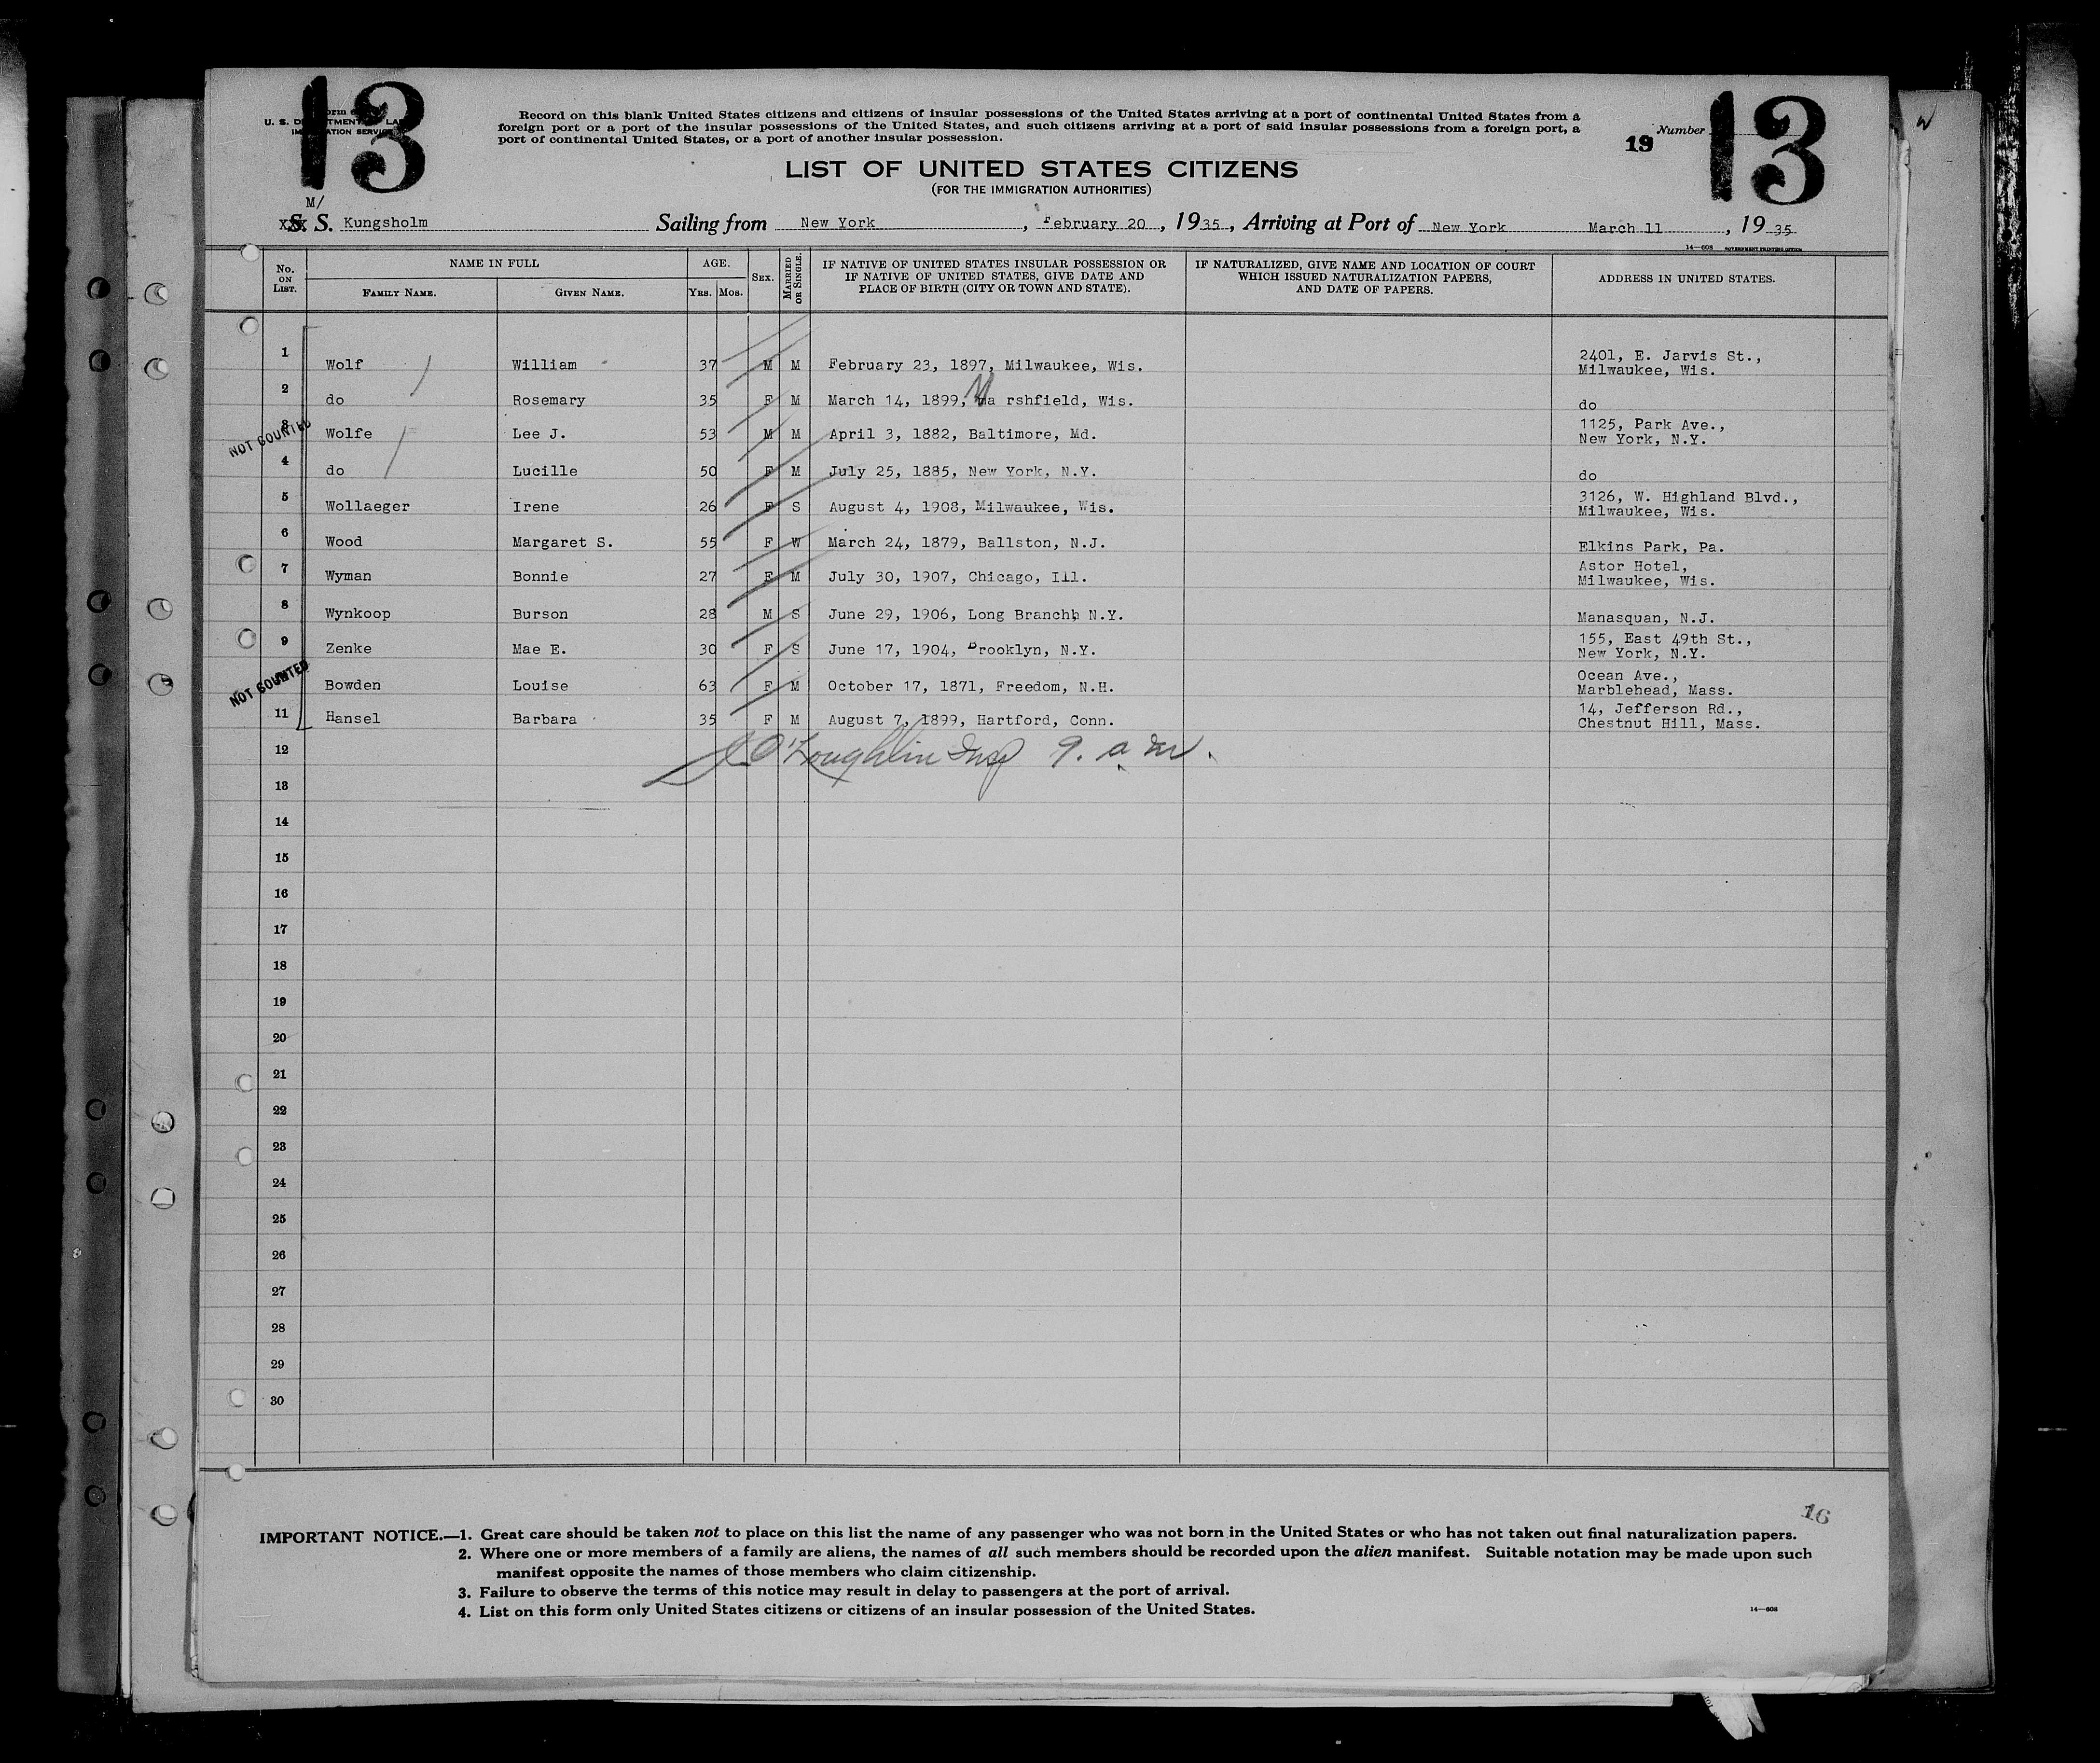 13
Form
U. S. DEPARTMENT OF LABOR
IMMIGRATION SERVICE
Record on this blank United States citizens and citizens of insular possessions of the United States arriving at a port of continental United States from a
foreign port or a port of the insular possessions of the United States, and such citizens arriving at a port of said insular possessions from a foreign port, a
port of continental United States, or a port of another insular possession.
19 Number 13
LIST OF UNITED STATES CITIZENS
(FOR THE IMMIGRATION AUTHORITIES)
M/
S. S. Kungsholm Sailing from New York, February 20, 1935, Arriving at Port of New York March 11, 1935
14—608 GOVERNMENT PRINTING OFFICE
No. ON LIST. NAME IN FULL AGE. SEX. MARRIED OR SINGLE. IF NATIVE OF UNITED STATES INSULAR POSSESSION OR IF NATIVE OF UNITED STATES, GIVE DATE AND PLACE OF BIRTH (CITY OR TOWN AND STATE). IF NATURALIZED, GIVE NAME AND LOCATION OF COURT WHICH ISSUED NATURALIZATION PAPERS, AND DATE OF PAPERS. ADDRESS IN UNITED STATES.
FAMILY NAME. GIVEN NAME. YRS. MOS.
1 Wolf William 37 M M February 23, 1897, Milwaukee, Wis. 2401, E. Jarvis St., Milwaukee, Wis.
2 do Rosemary 35 F M March 14, 1899, Ma rshfield, Wis. do
NOT COUNTED 3 Wolfe Lee J. 53 M M April 3, 1882, Baltimore, Md. 1125, Park Ave., New York, N.Y.
4 do Lucille 50 F M July 25, 1885, New York, N.Y. do
5 Wollaeger Irene 26 F S August 4, 1908, Milwaukee, Wis. 3126, W. Highland Blvd., Milwaukee, Wis.
6 Wood Margaret S. 55 F W March 24, 1879, Ballston, N.J. Elkins Park, Pa.
7 Wyman Bonnie 27 F M July 30, 1907, Chicago, Ill. Astor Hotel, Milwaukee, Wis.
8 Wynkoop Burson 28 M S June 29, 1906, Long Branchh N.Y. Manasquan, N.J.
9 Zenke Mae E. 30 F S June 17, 1904, Brooklyn, N.Y. 155, East 49th St., New York, N.Y.
NOT COUNTED Bowden Louise 63 F M October 17, 1871, Freedom, N.H. Ocean Ave., Marblehead, Mass.
11 Hansel Barbara 35 F M August 7, 1899, Hartford, Conn. 14, Jefferson Rd., Chestnut Hill, Mass.
12 O'Loughlin Insp 9. a m.
13
14
15
16
17
18
19
20
21
22
23
24
25
26
27
28
29
30
16
IMPORTANT NOTICE.—1. Great care should be taken not to place on this list the name of any passenger who was not born in the United States or who has not taken out final naturalization papers.
2. Where one or more members of a family are aliens, the names of all such members should be recorded upon the alien manifest. Suitable notation may be made upon such
manifest opposite the names of those members who claim citizenship.
3. Failure to observe the terms of this notice may result in delay to passengers at the port of arrival.
4. List on this form only United States citizens or citizens of an insular possession of the United States.
14—608
W